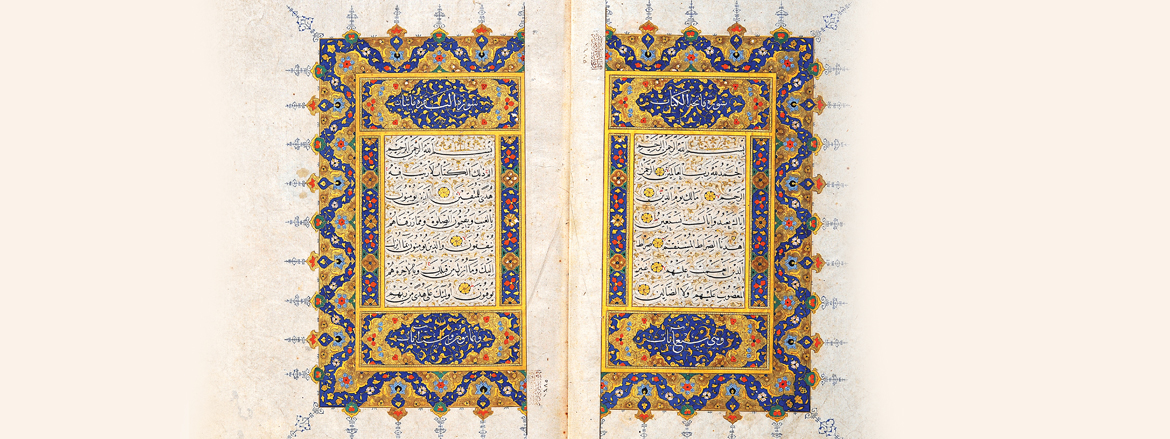 سورة فاتحة الكتاب
بسم الله الرحمن الرحيم
الحمد لله رب العالمين الرحمن
الرحيم مالك يوم الدين
اياك نعبد واياك نستعين
اهدنا الصراط المستقيم صراط
الذين انعمت عليهم غير
المغضوب عليهم ولا الضالين
وهي سبع آيات
سورة البقرة مائتان
بسم الله الرحمن الرحيم
الم ذلك الكتاب لا ريب فيه
هدى للمتقين الذين يؤمنون
بالغيب ويقيمون الصلوة ومما رزقناهم
ينفقون والذين يؤمنون بما انزل
اليك وما انزل من قبلك وبالاخرة هم
يوقنون اولئك على هدى من ربهم